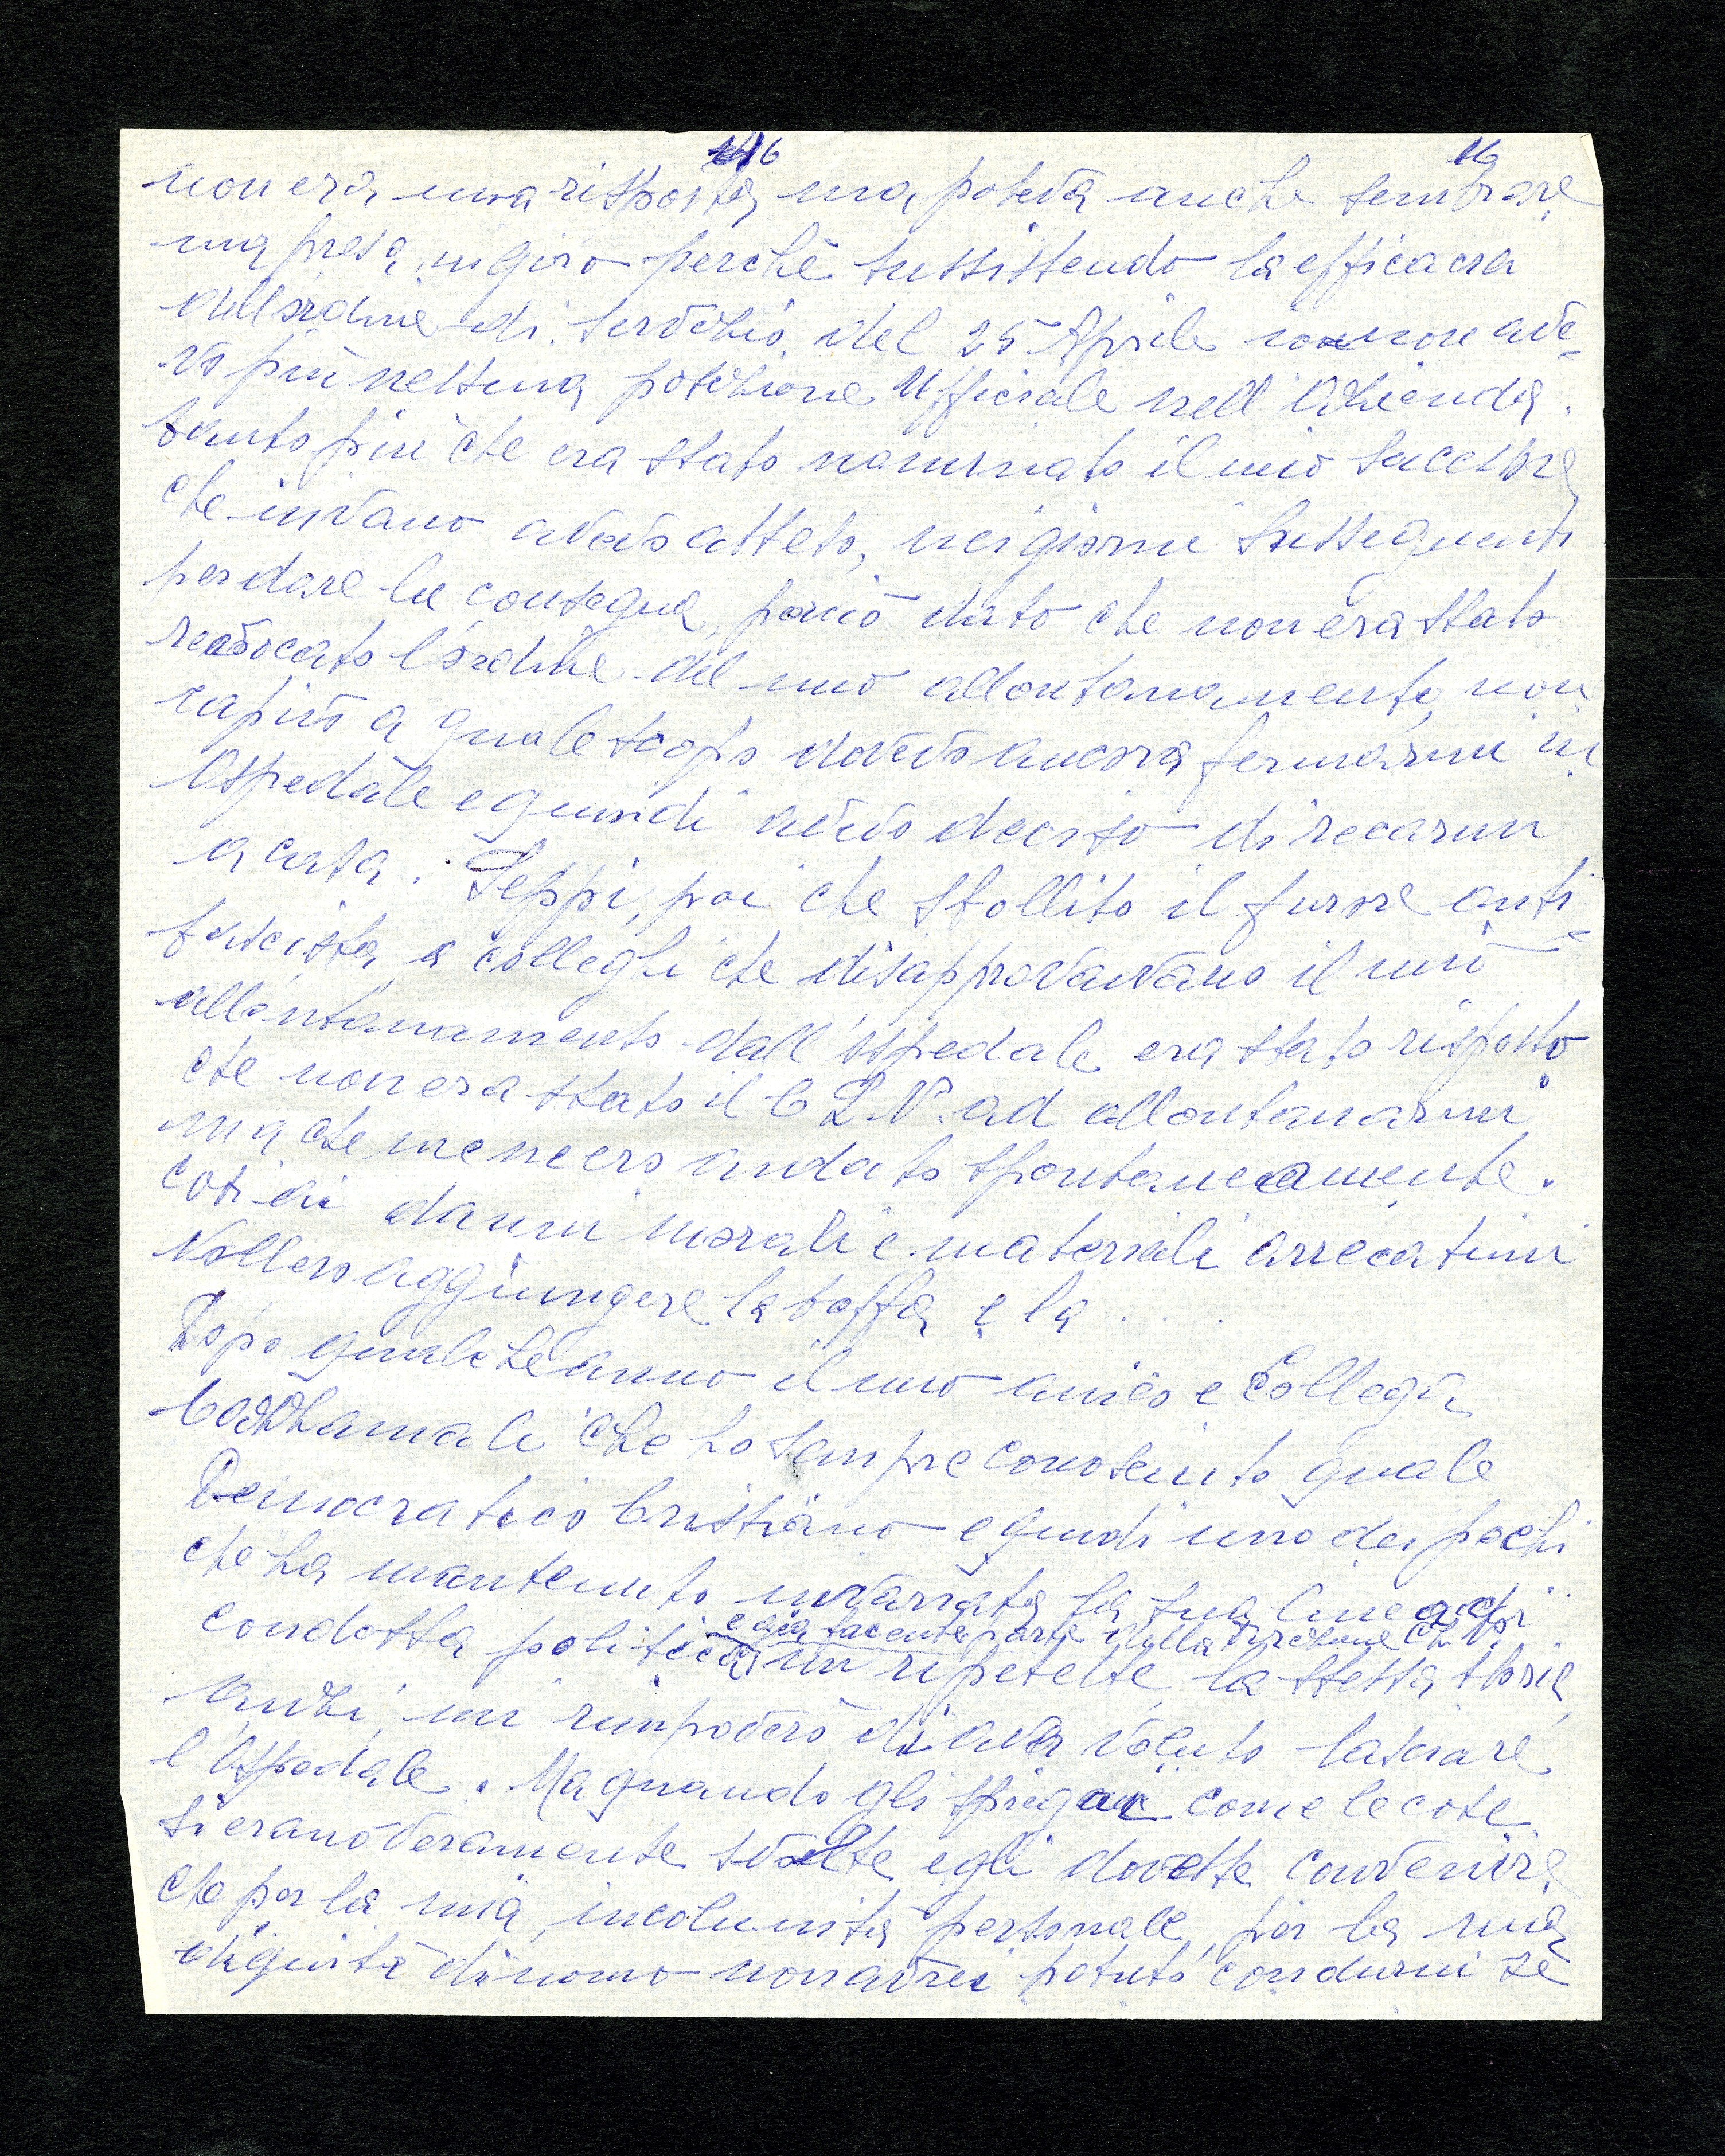 16 16
non era una risposta, ma poteva anche sembrare
una presa in giro perchè sussistendo la efficacia
dell'ordine di servizio del 25 Aprile io non ave-
vo più nessuna posizione Ufficiale nell'Azienda.
tanto più che era stato nominato il mio successore
che invano avevo atteso, nei giorni susseguenti
per dare le consegne, perciò dato che non era stato
revocato l'ordine del mio allontanamento, non
capivo a quale scopo dovevo ancora fermarmi in
Ospedale e quindi avevo deciso di recarmi
a casa. Seppi, poi che sbollito il furore anti
fascista, a colleghi che disapprovavano il mio
allontanamento dall'ospedale era stato risposto
che non era stato il C.L.N. ad allontanarmi
ma che me ne ero andato spontaneamente.
Così ai danni morali e materiali arrecatimi
vollero aggiungere la beffa e la . . .
Dopo qualche anno il mio amico e Collega
che ho sempre conosciuto quale
Democratico Cristiano e quindi uno dei pochi
che ha mantenuto invariata la sua linea di
e già facente parte della Direzione
condotta politica, mi ripetette la stessa storia
anzi, mi rimproverò di aver voluto lasciare
l'Ospedale. Ma quando gli spiegai come le cose
si erano veramente svolte egli dovette convenire
che per la mia incolumità personale, per la mia
dignità di uomo non avrei potuto condurmi se